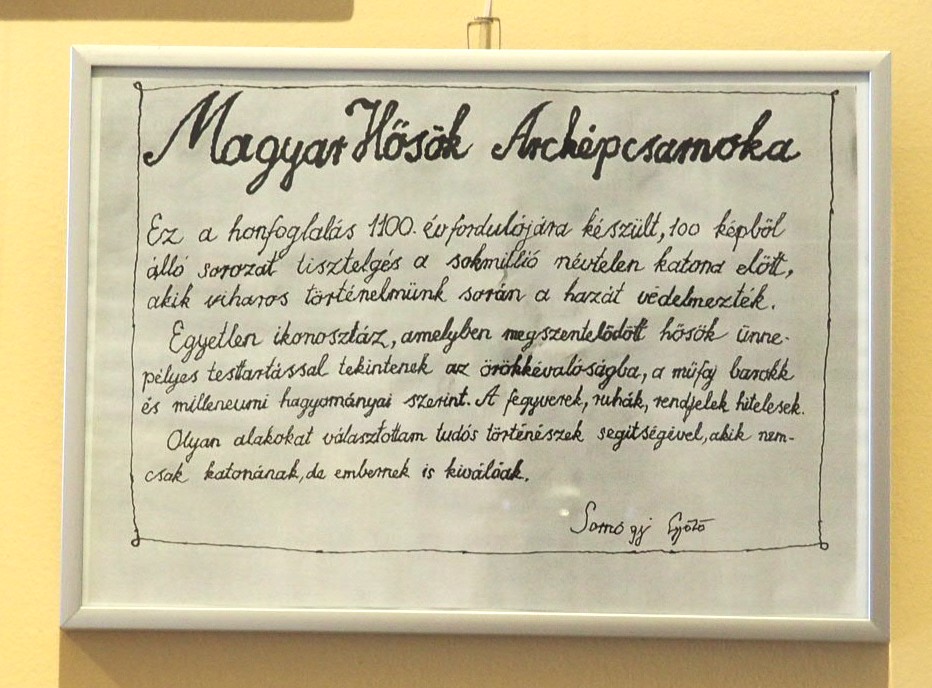 Magyar Hősök Arcképcsarnoka
Ez a honfoglalás 1100. évfordulójára készült, 100 képből
álló sorozat tisztelgés a sokmillió névtelen katona előtt,
akik viharos történelmünk során a hazát védelmezték.
Egyetlen ikonosztáz, amelyben megszentelődött hősök ünne-
pélyes testtartással tekintenek az örökkévalóságba, a műfaj barokk
és milleneumi hagyományai szerint. A fegyverek, ruhák, rendjelek hitelesek.
Olyan alakokat választottam tudós történészek segítségével, akik nem-
csak katonának, de embernek is kiválóak.
Somogyi Győző